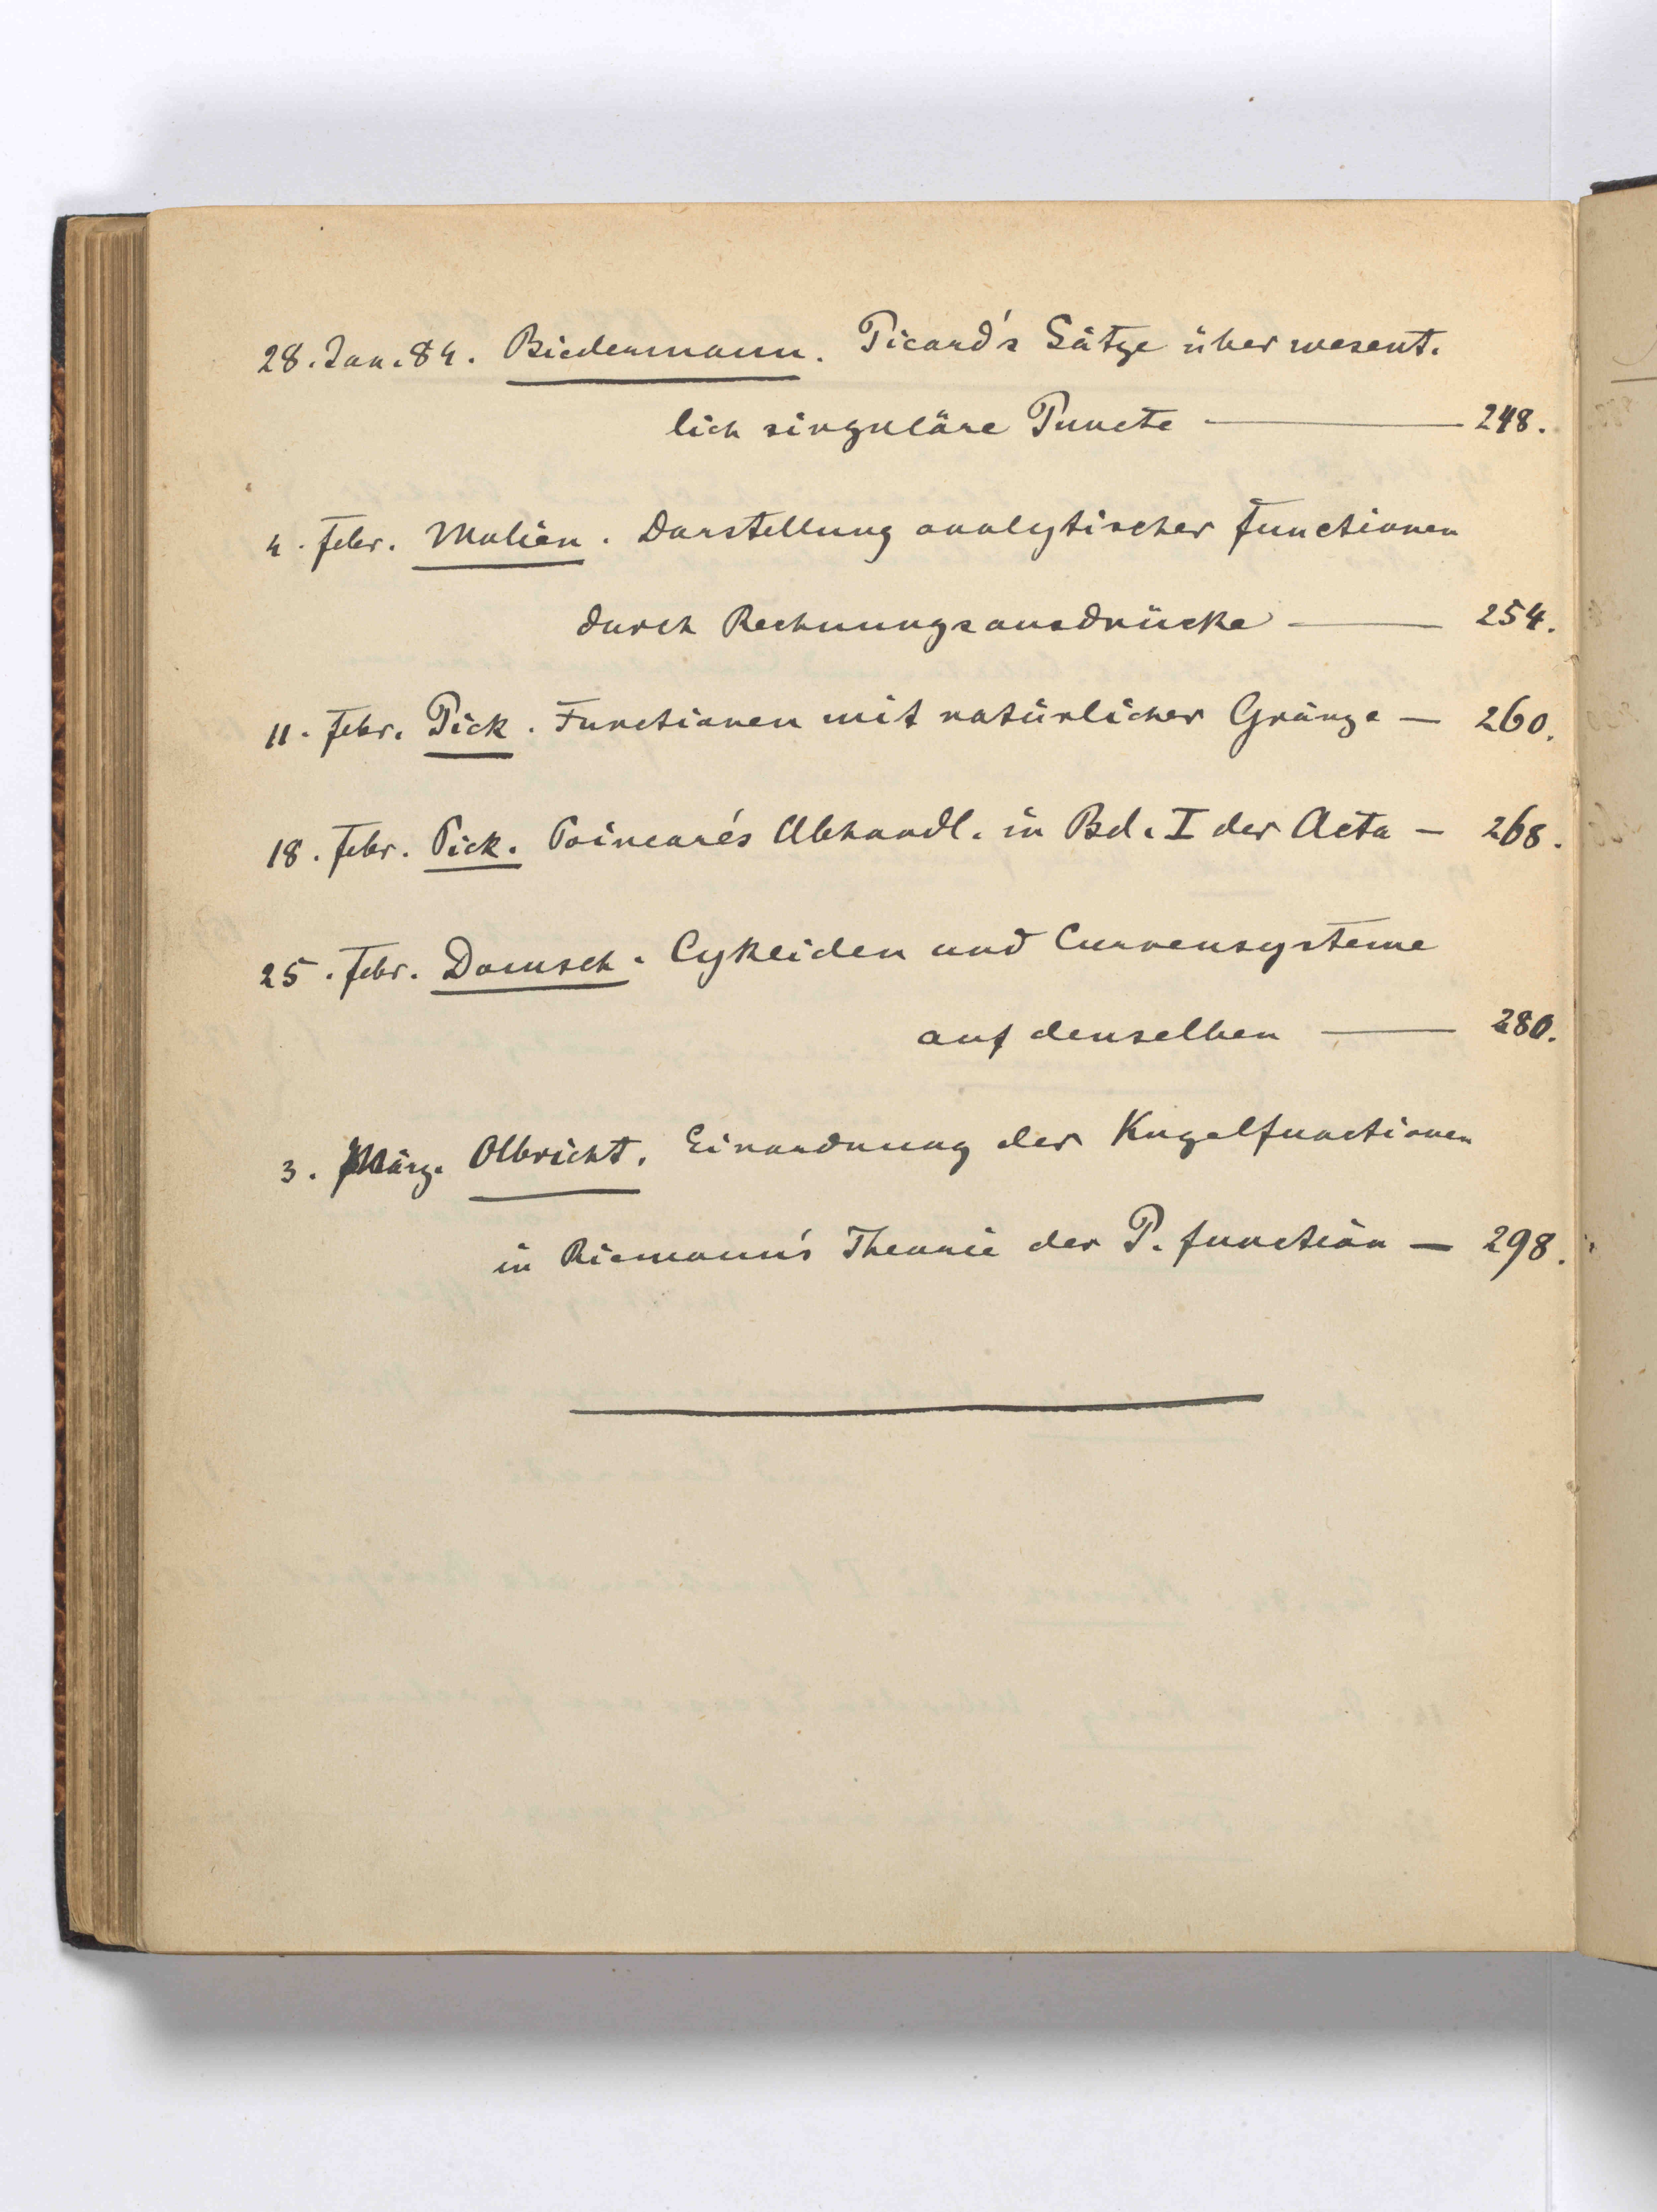 28. Jan. 84. Biedermann. Picard's Sätze über wesent-
lich singuläre Puncte — 248.
4. Febr. Molien. Darstellung analytischer Functionen
durch Rechnungsausdrücke — 254.
11. Febr. Pick. Functionen mit natürlicher Gränze — 260.
18. Febr. Pick. Poincaré's Abhandl. in Bd. I der Acta — 268.
25. Febr. Domsch. Cykliden und Curvensysteme
auf denselben — 280.
3. März. Olbricht. Einordnung der Kugelfunctionen
in Riemann's Theorie der P-function — 298.